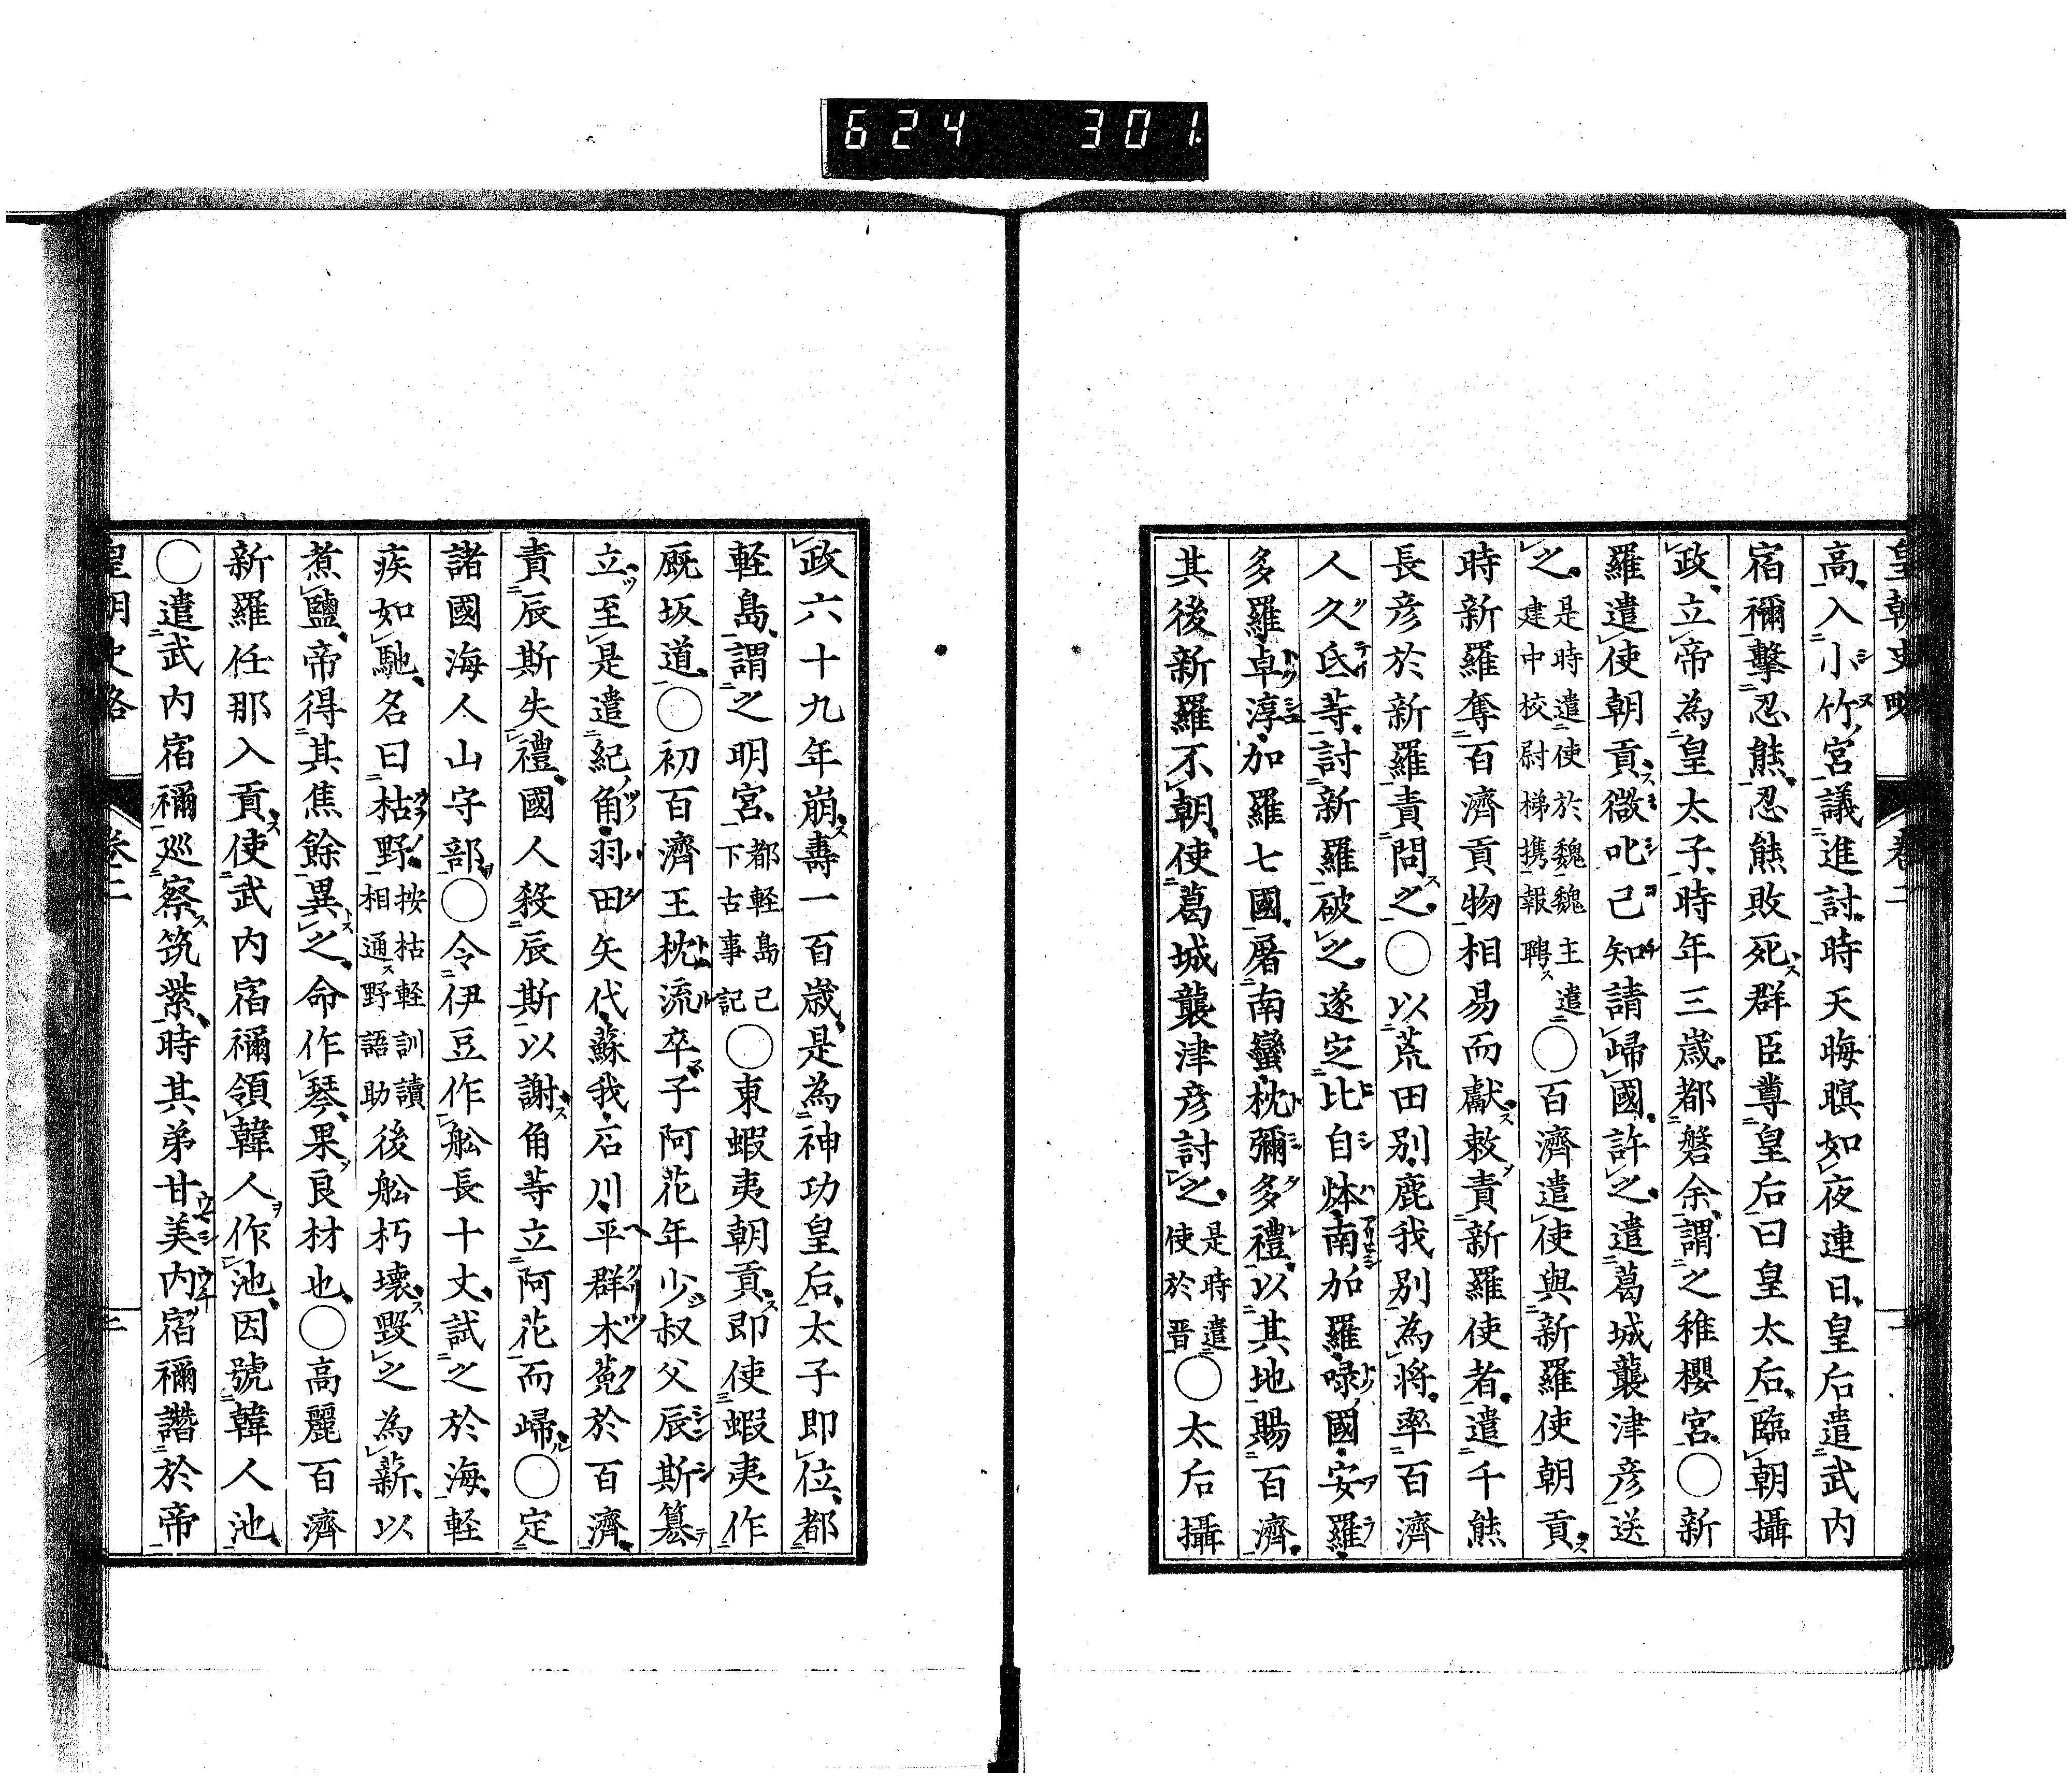 624 301
皇朝史略 卷二
高入小竹宮議進討時天晦暝如夜連日皇后遣武内
宿禰擊忍熊忍熊敗死群臣尊皇后曰皇太后臨朝攝
政立帝為皇太子時年三歲都磐余謂之稚櫻宮○新
羅遣使朝貢微叱己知請歸國許之遣葛城襲津彦送
之是時遣使於魏魏主遣建中校尉梯携報聘○百濟遣使與新羅使朝貢
時新羅奪百濟貢物相易而獻敕責新羅使者遣千熊
長彦於新羅責問之○以荒田別鹿我別為將率百濟
人久氐等討新羅破之遂定比自㶱南加羅㖨國安羅
多羅卓淳加羅七國屠南蠻枕彌多禮以其地賜百濟
其後新羅不朝使葛城襲津彦討之是時遣使於晋○太后攝
政六十九年崩壽一百歲是為神功皇后太子即位都
軽島謂之明宮都軽島已下古事記○東蝦夷朝貢即使蝦夷作
厩坂道○初百濟王枕流卒子阿花年少叔父辰斯簒
立至是遣紀角羽田矢代蘇我石川平群木菟於百濟
責辰斯失禮國人殺辰斯以謝角等立阿花而歸○定
諸國海人山守部○令伊豆作舩長十丈試之於海軽
疾如馳名曰枯野按枯軽訓讀相通野語助後舩朽壞毀之為薪以
煮鹽帝得其焦餘異之命作琴果良材也○高麗百濟
新羅任那入貢使武内宿禰領韓人作池因號韓人池
○遣武内宿禰巡察筑紫時其弟甘美内宿禰譖於帝
皇朝史略 卷二 二